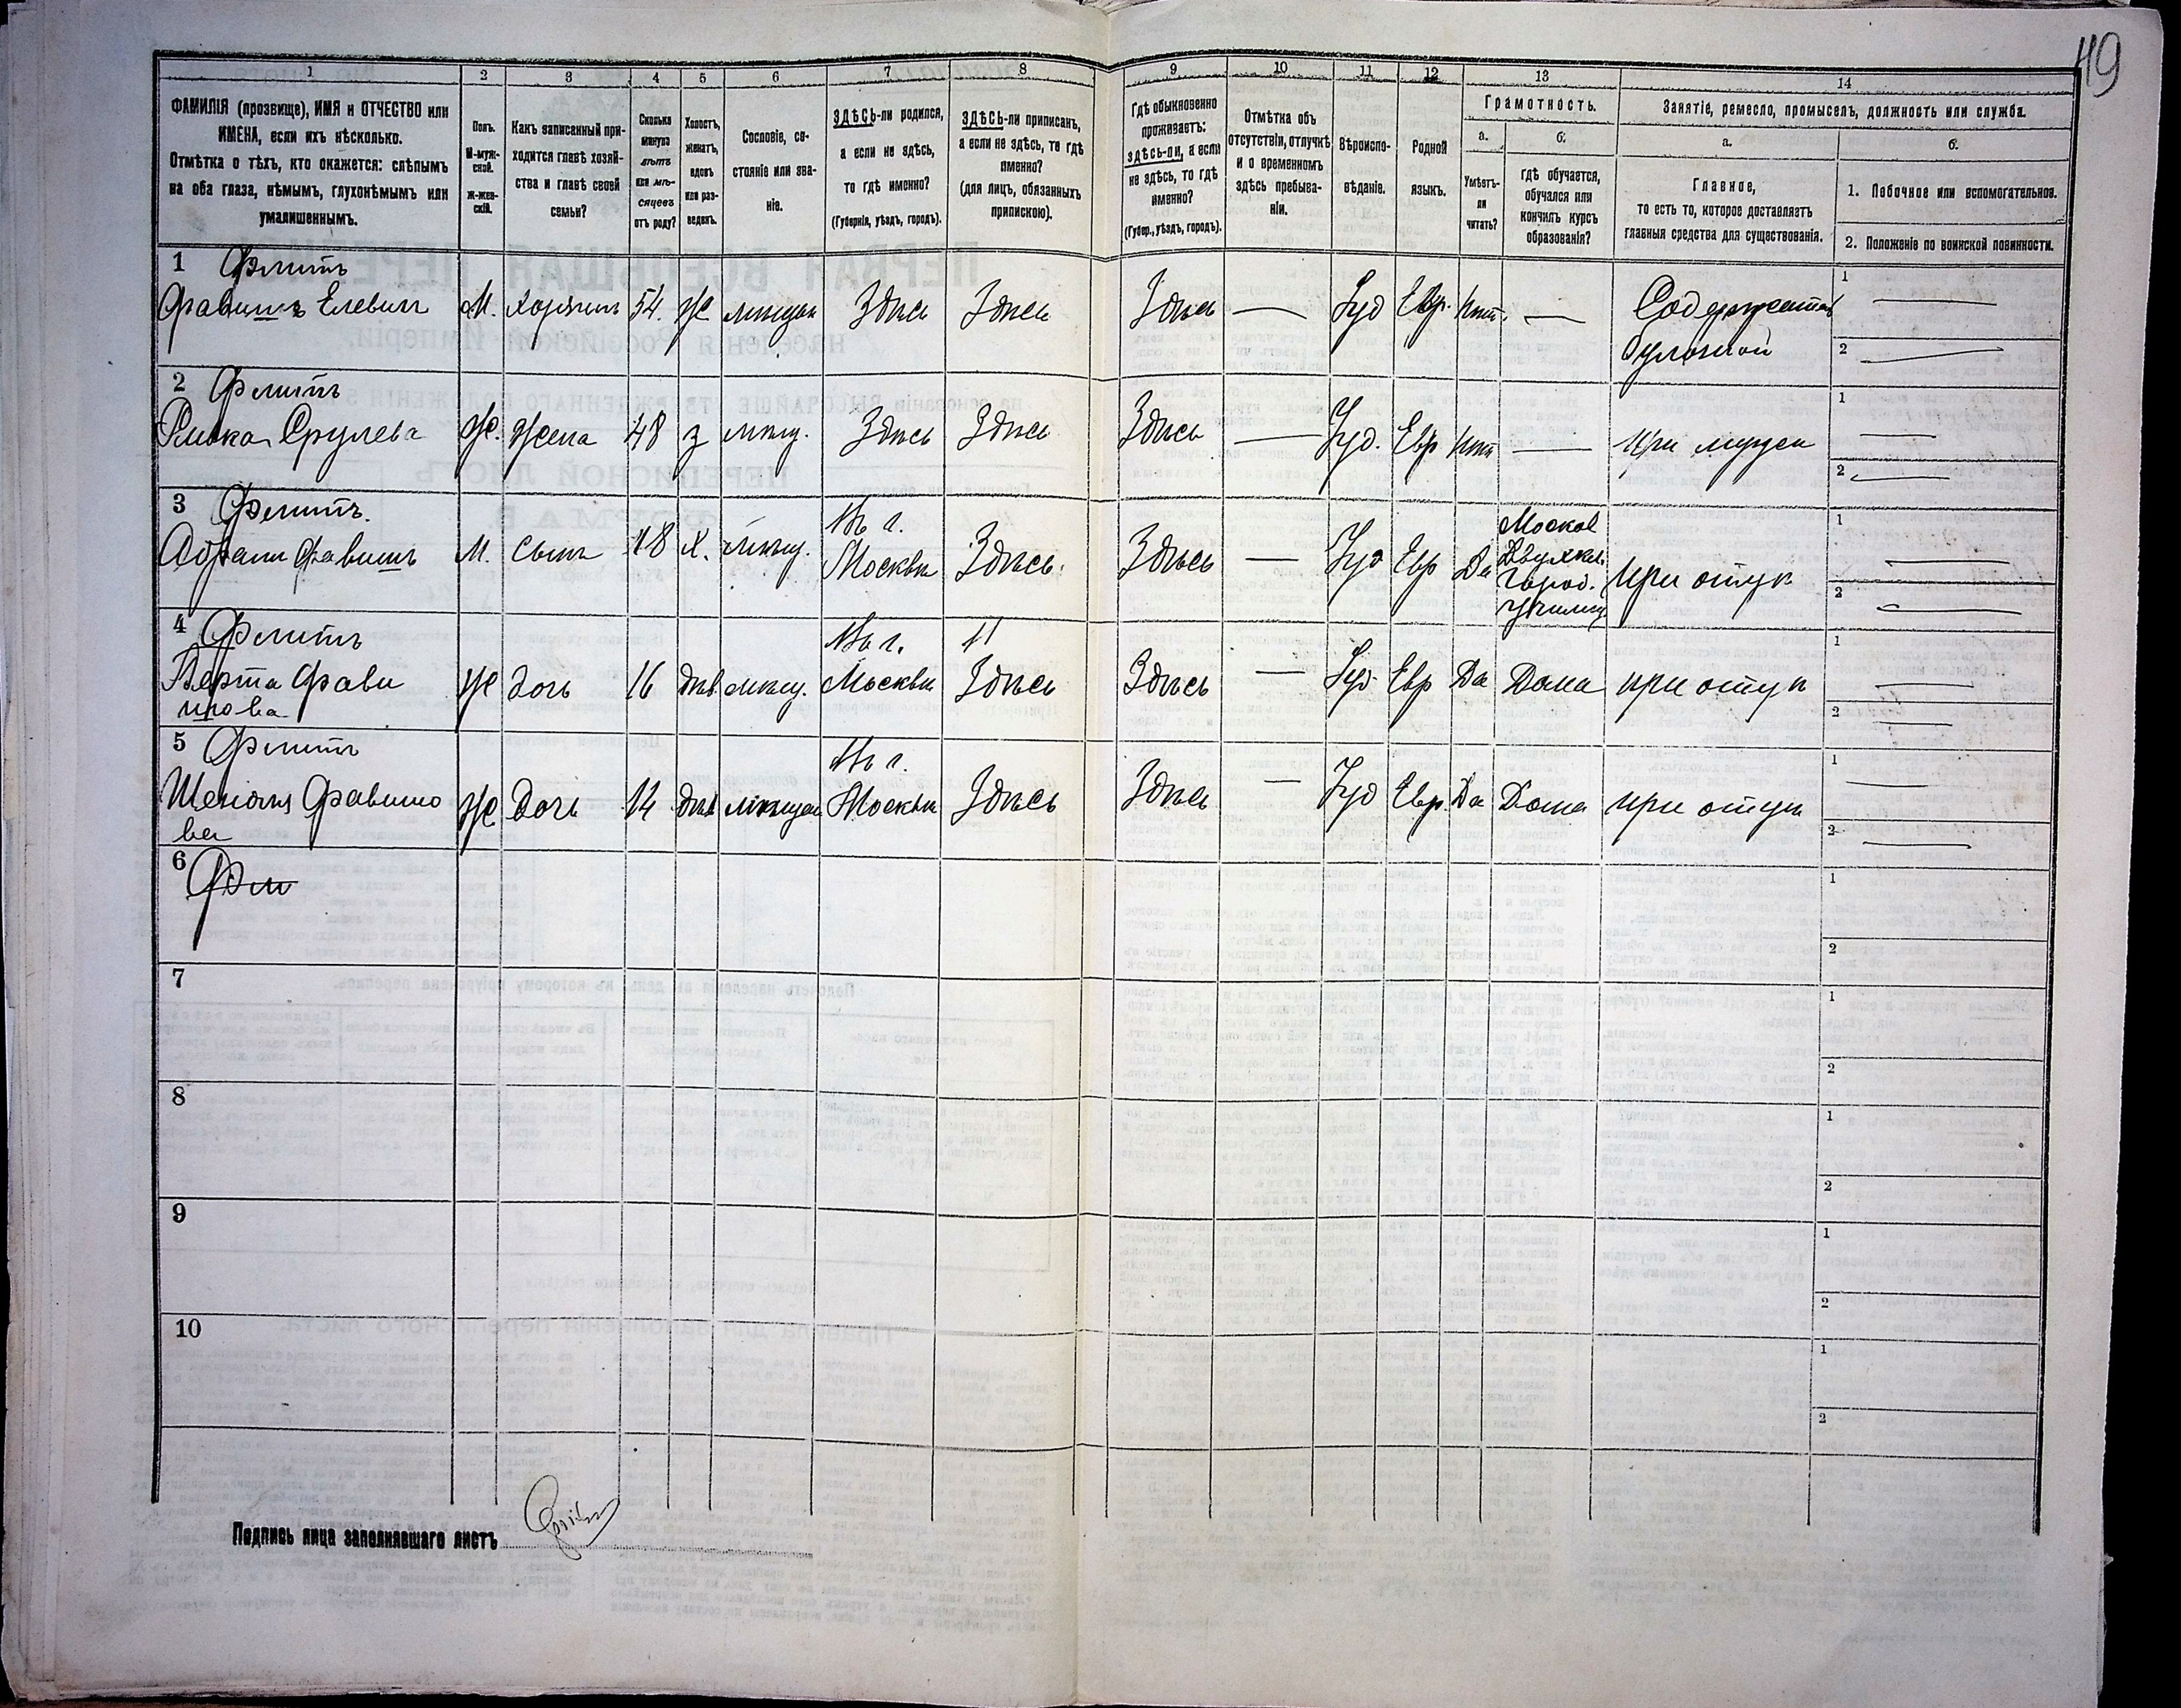 49
1 2 3 4 5 6 7 8 9 10 11 12 13 14
ФАМИЛІЯ (прозвище), ИМЯ и ОТЧЕСТВО или
ИМЕНА, если ихъ нѣсколько.
Отмѣтка о тѣхъ, кто окажется: слѣпымъ
на оба глаза, нѣмымъ, глухонѣмымъ или
умалишеннымъ.
Полъ.
М-муж-
ской.
Ж-жен-
скій.
Какъ записанный при-
ходится главѣ хозяй-
ства и главѣ своей
семьи?
Сколько
минуло
лѣтъ
или мѣ-
сяцевъ
отъ роду?
Холостъ,
женатъ,
вдовъ
или раз-
веденъ.
Сословіе, со-
стояніе или зва-
ніе.
ЗДѢСЬ-ли родился,
а если не здѣсь,
то гдѣ именно?
(Губернія, уѣздъ, городъ).
ЗДѢСЬ-ли приписан,
а если не здѣсь, то гдѣ
именно?
(для лицъ, обязанныхъ
припискою).
Гдѣ обыкновенно
проживаетъ:
здѣсь-ли, а если
не здѣсь, то гдѣ
именно?
(Губер., уѣздъ, городъ).
Отмѣтка объ
отсутствіи, отлучкѣ
и о временномъ
здѣсь пребыва-
ніи.
Вѣроиспо-
вѣданіе.
Родной
языкъ.
Грамотность.
а.
Умѣетъ-
ли
читать?
б.
гдѣ обучается,
обучался или
кончилъ курсъ
образованія?
Занятіе, ремесло, промыселъ, должность или служба.
а.
Главное,
то есть то, которое доставляетъ
главныя средства для существованія.
б.
1. Побочное или вспомогательное.
2. Положеніе по воинской повинности.
1
Фавишъ М. хозяинъ 54. Ж Здѣсь Здѣсь Здѣсь — Іуд Евр. нѣт. — Содержатель
булочной
1 —
2 —
2
Ривка Срулева Ж. Жена 48 З мѣщ. Здѣсь Здѣсь Здѣсь — Іуд. Евр нѣт — при мужѣ
1 —
2 —
3
Абрам Фавишъ М. Сынъ 18 Х. мѣщ. Въ г.
Москвѣ Здѣсь Здѣсь — Іуд Евр Да Москов
Двухкл.
Город.
училищ при отцѣ
1 —
2 —
4
Берта Фави
шова Ж дочь 16 дѣв мѣщ. Въ г.
Москвѣ Здѣсь Здѣсь — Іуд. Евр Да Дома при отцѣ
1 —
2 —
5
Фавишо
ва Ж Дочь 14 дѣв мѣщан Въ г.
Москвѣ Здѣсь Здѣсь — Іуд Евр. Да Дома при отцѣ
1 —
2 —
6
1
2
7
1
2
8
1
2
9
1
2
10
1
2
Подпись лица заполнявшаго листъ